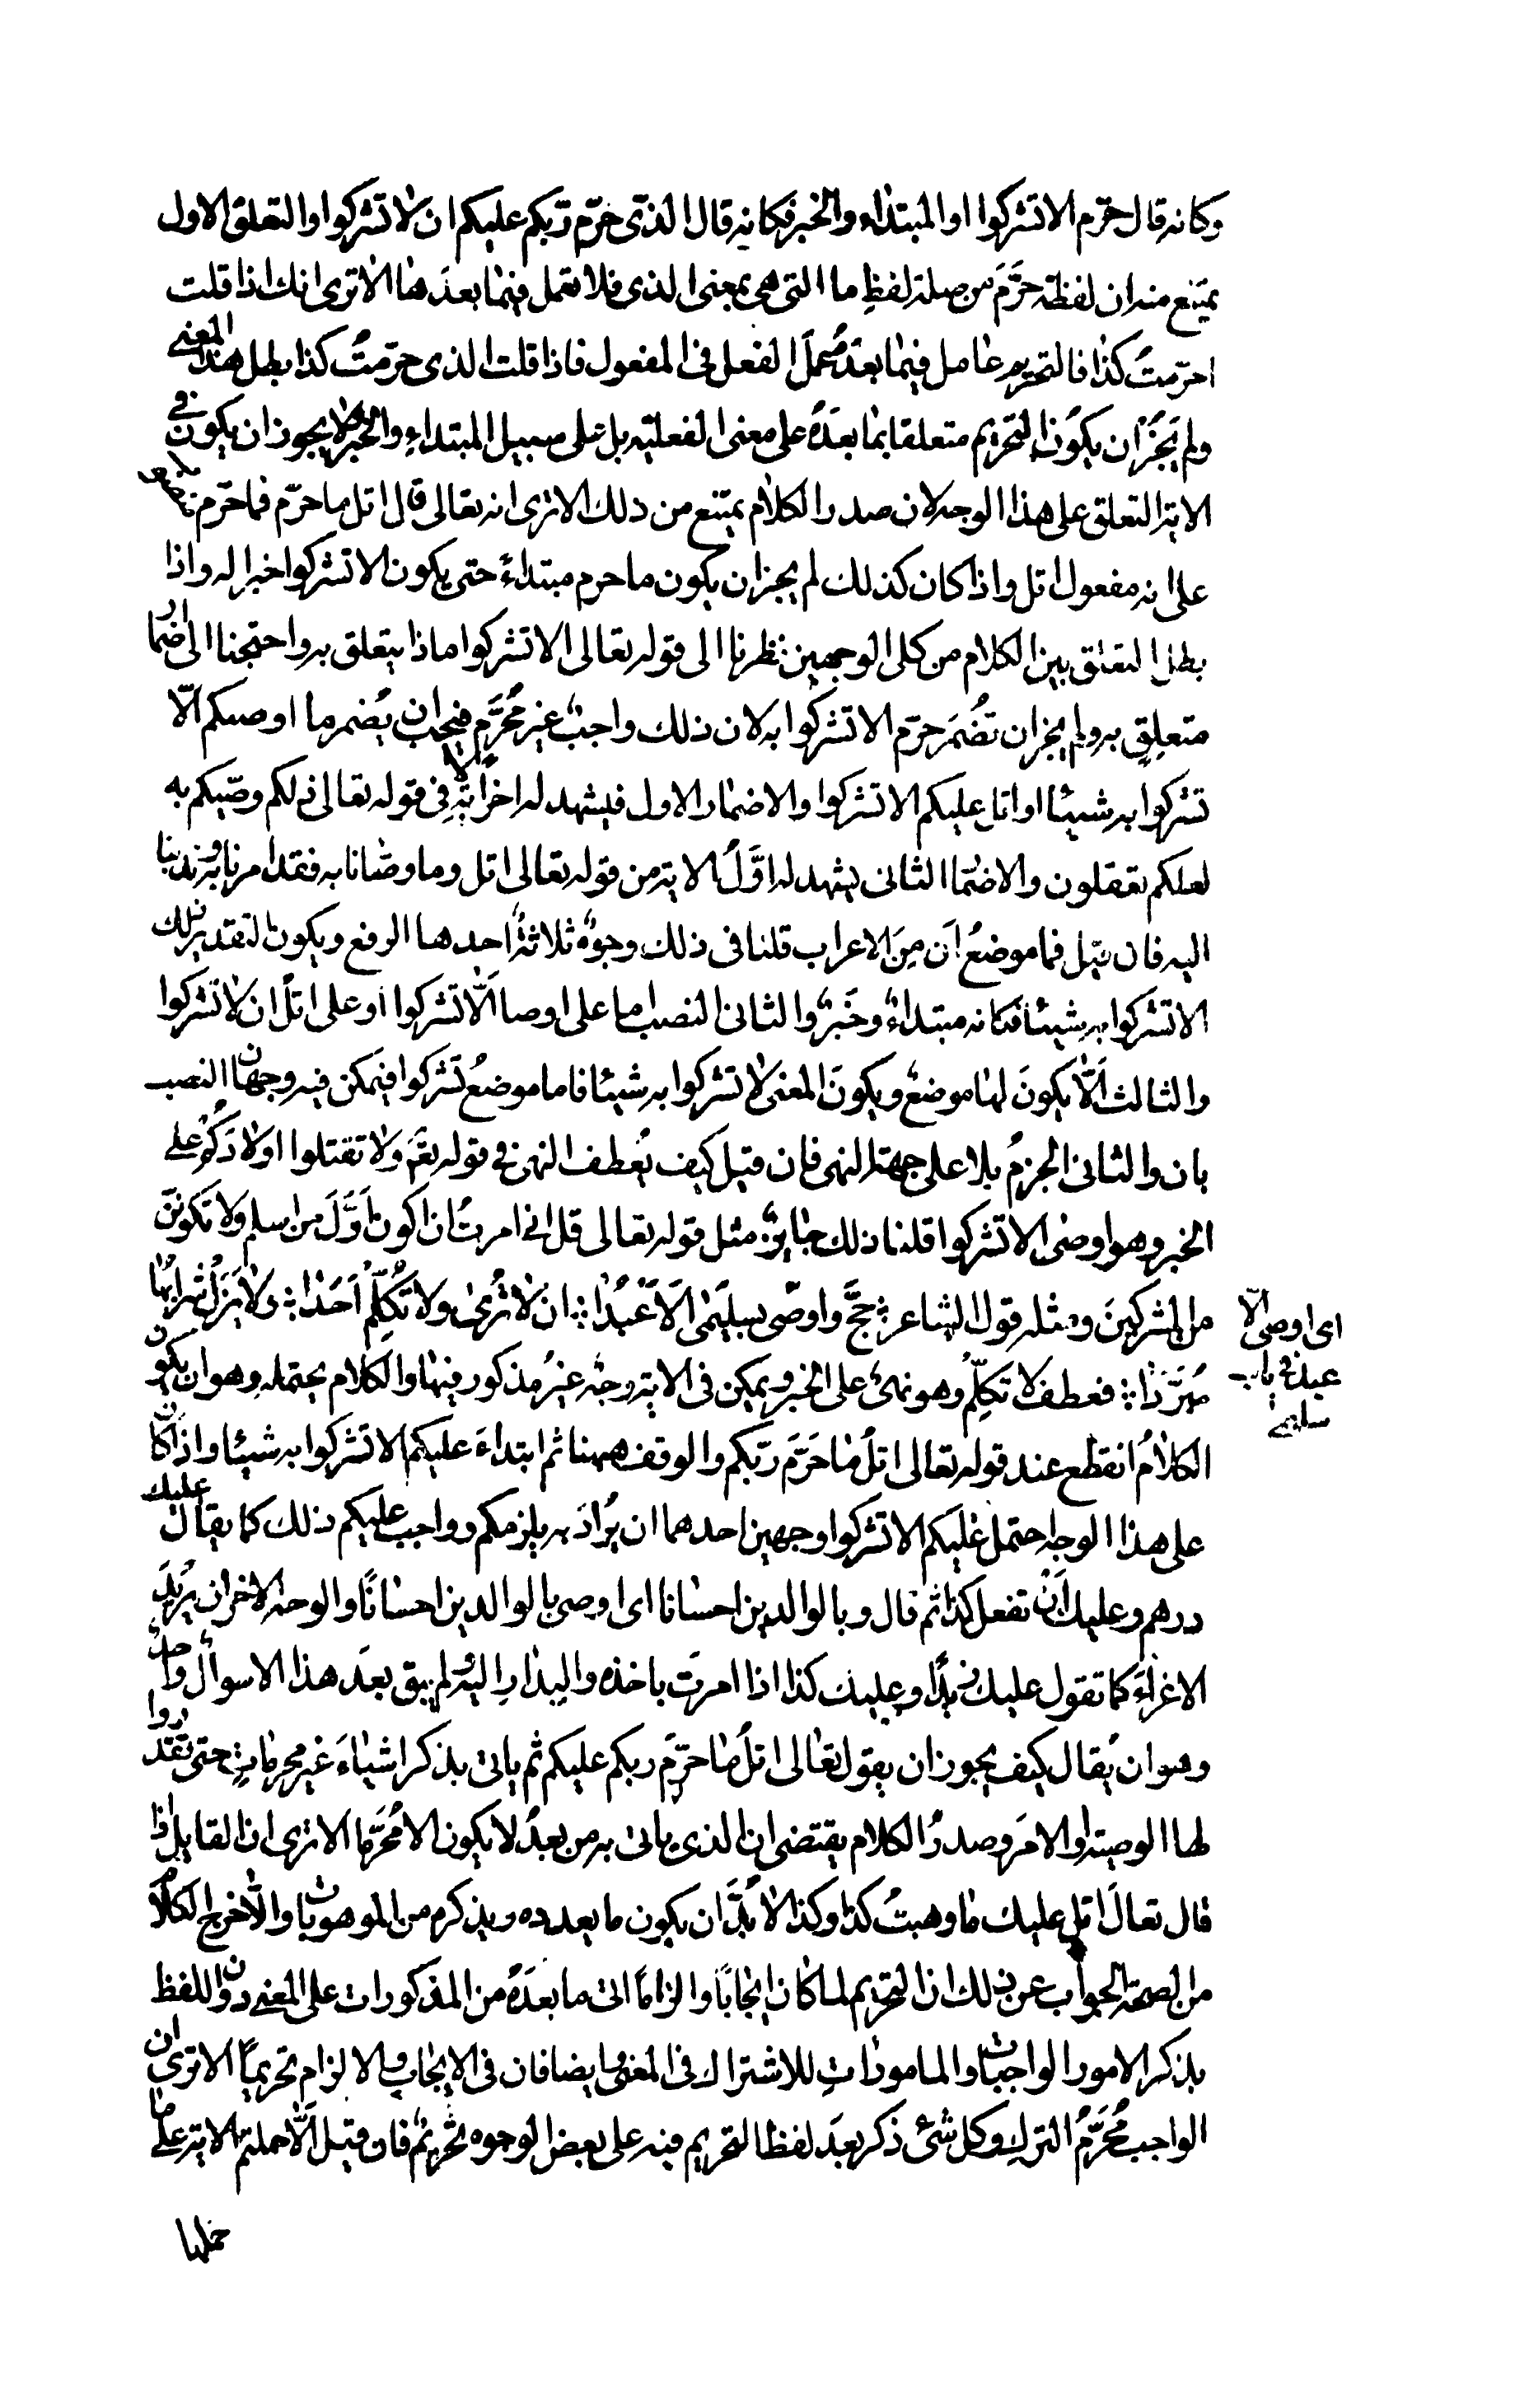 وكانه قال حرّم الا تشركوا او المبتداء والخبر فكانه قال الذى حرّم ربّكم عليكم ان لا تشركوا والتعلق الاول
يمتنع منه ان لفظة حَرَّمَ من صلة لفظِ ما التى هى بمعنى الذى فلا تعمل فيما بعدَها الا ترى انك اذا قلت
حرّمتُ كذا فالتحريم عامل فيما بعدَهُ عملَ الفعل فى المفعول فاذا قلت الذى حرّمتُ كذا بطل هذا المعنى
ولم يَجُزْ ان يكونَ التحريم متعلقا بما بعدَهُ على معنى الفعلية بل على سبيل المبتداءِ والخبر ولا يجوز ان يكون فى
الاية التعلق على هذا الوجه لان صدر الكلام يمتنع من ذلك الا ترى انه تعالى قال اتل ما حرّم فما حرّم
على انه مفعول اتل واذا كان كذلك لم يجز ان يكون ما حرم مبتداءً حتى يكون الا تشركوا خبرا له واذا
بطل التعلق بين الكلام من كلى الوجهين نظرنا الى قوله تعالى الا تشركوا ماذا يتعلق به واحتجنا الى اضمار
متعلِقٍ به ولم يجز ان تُضمَرَ حرّم الا تشركوا به لان ذلك واجبٌ غير مُحَرَّمٍ فيجب ان يُضمر ما اوصيكم الّا
تشركوا به شيئا او اتل عليكم الا تشركوا والاضمار الاول فيشهد له اخرُ الاية فى قوله تعالى ذلكم وصّيكم به
لعلكم تعقلون والاضما الثانى يشهد له اوّلُ الاية من قوله تعالى اتل وما وصّانا به فقد امرنا به وندبنا
اليه فان قيل فما موضعُ اَن مِنَ الاعراب قلنا فى ذلك وجوهٌ ثلاثةٌ احدها الرفع ويكون التقدير ذلك
الا تشركوا به شيئا فكانه مبتداءٌ وخَبرٌ والثانى النصب اما على اوصا اَلّا تشركوا او على اتلُ ان لا تشركوا
والثالث اَلّا يكونَ لها موضعٌ ويكونَ المعنى لا تشركوا به شيئا فاما موضعُ تشركوا فيمكن فيه وجهان النصب
بان والثانى الجزمُ بلا على جهة النهى فان قيل كيف يُعطف النهى فى قوله تعَ ولا تقتلوا اولادَكُمْ على
الخبر وهو اوصى الا تشركوا قلنا ذلك جايزٌ مثل قوله تعالى قل انى امرتُ ان اكون اَوَّلَ من اسلم ولا تكوننّ
من المشركينَ ومثله قول الشاعر ؞ حجَّ واوصّى بسليمى الاَعْبُدا ؞ ان لا تُرى ولا تُكلِّمْ اَحَدا ؞ ولا يَزَلْ شرابُها
مُبَرَّدا ؞ فعطف لا تكلِّمْ وهو نهىٌ على الخبر ويمكن فى الاية وجهٌ غيرُ مذكور فيها والكلام يحتمله وهو ان يكون
الكلامُ انقطع عند قوله تعالى اتلُ ما حَرَّمَ ربّكم والوقف ههنا ثم ابتداءَ عليكم الا تشركوا به شيئا واذا كان
على هذا الوجه احتمل عليكم الا تشركوا وجهين احدهما ان يُرادَ به يلزمكم وواجب عليكم ذلك كما يقال عليك
درهم وعليك اَنْ تفعل كذا ثم قال وبالوالدين احسانا اى اوصى بالوالدين احسانًا والوجه الاخر ان يُريدَ
الاغراءَ كما تقول عليك زيدًا وعليك كذا اذا امرتَ باخذه والبِدارِ اليه لم يبق بعدَ هذا الا سوالٌ واحدٌ
وهو ان يُقال كيف يجوز ان يقول تعالى اتلُ ما حرَّمَ ربكم عليكم ثم ياتى بذكر اشياءَ غير محرماتٍ حتى تقدروا
لها الوصية والامرَ وصدرُ الكلام يقتضى ان الذى ياتى به من بعدُ لا يكون الا مُحَرَّما الا ترى ان القايل اذا
قال تعالَ اتل عليك ما وهبتُ كذا وكذا لا بُدَّ ان يكون ما يعدده ويذكره من الموهوبات والّا خرج الكلام
من الصحة الجواب عن ذلك ان التحريم لما كان ايجابًا والزامًا اتى ما بعدَهُ من المذكورات على المعنى دون اللفظ
بذكر الامور الواجبات والماموراتِ للاشتراك فى المعنى وايضا فان فى الايجاب والالزام تحريمًا الا ترى ان
الواجب مُحَرَّمُ التركِ وكل شئ ذكر بعدَ لفظ التحريم فيه على بعض الوجوه تحريمٌ فان قيل اَلّا حملتم الاية على ما
حملها
اى اوصى الّا
عبد فى باب
سليمى